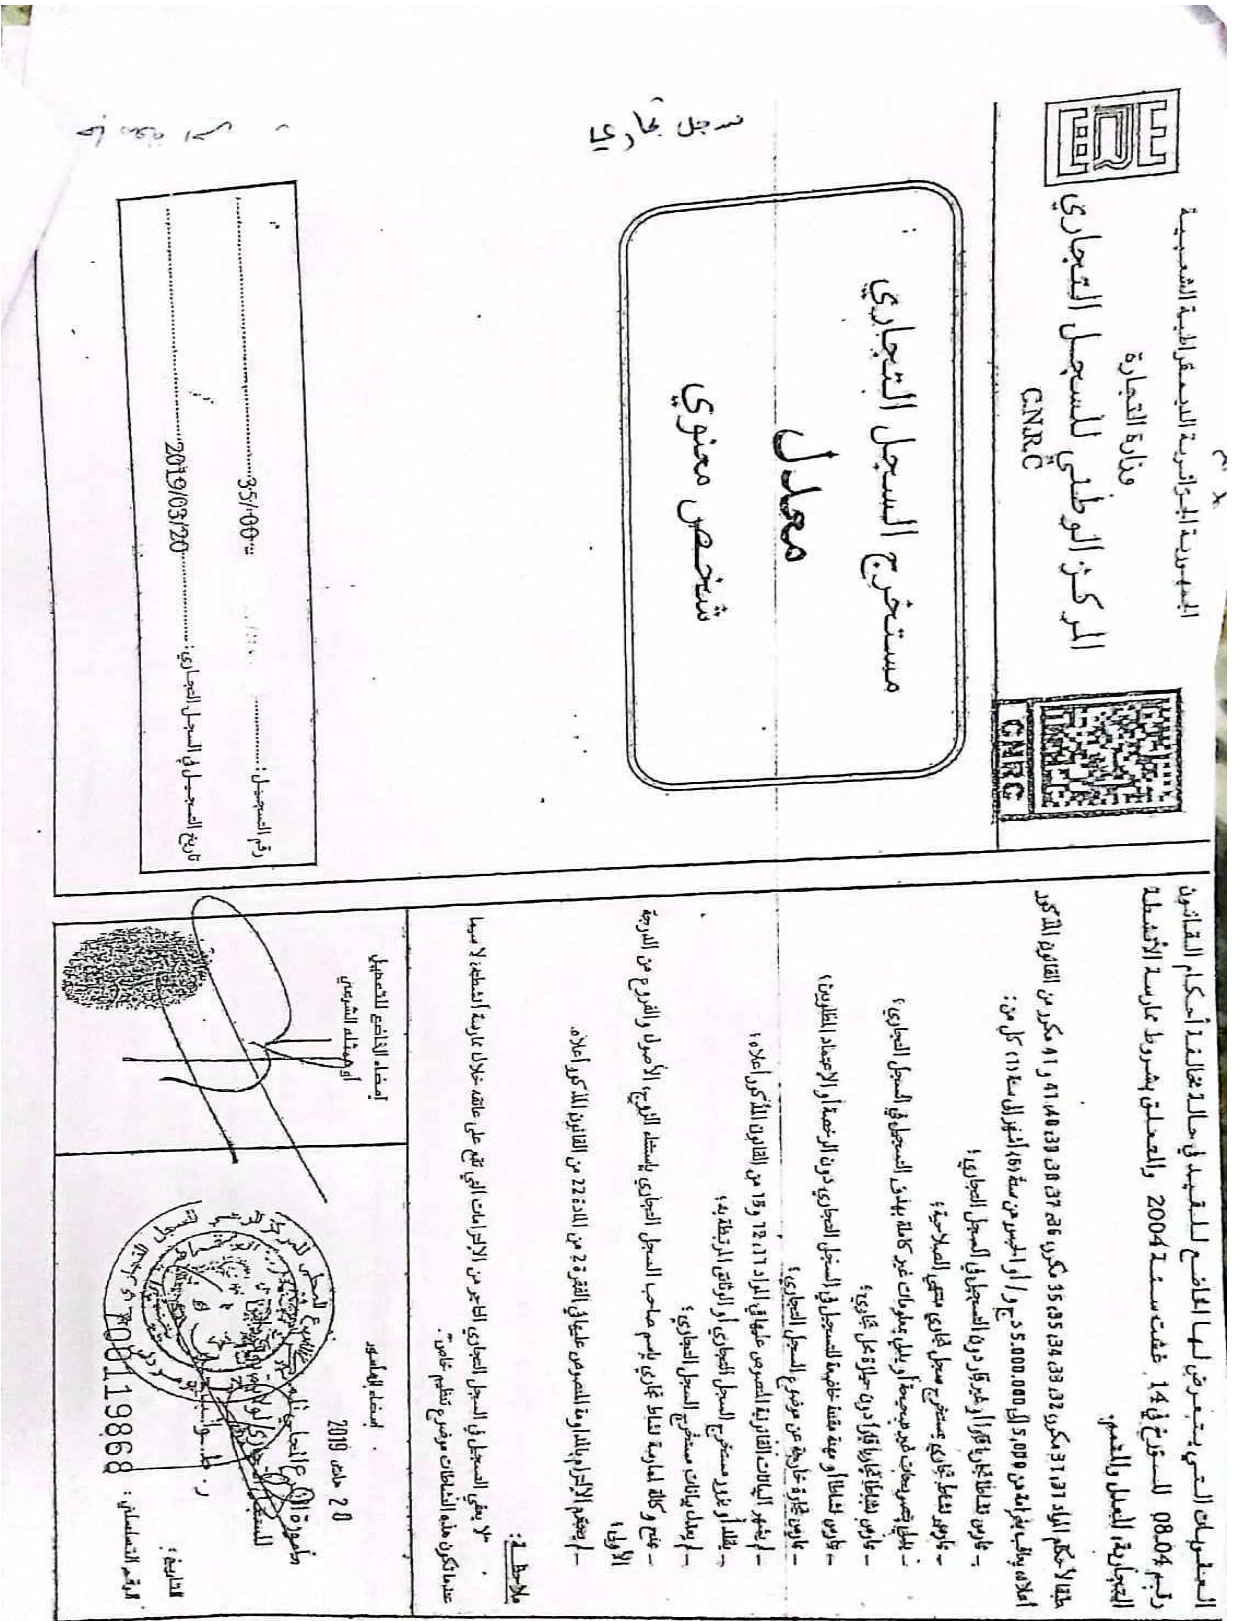 الجمهورية الجزائرية الديمقراطية الشعبية
وزارة التجارة
المركز الوطني للسجل التجاري
C.N.R.C
CNRC
مستخرج السجل التجاري
معدل
شخص معنوي
سجل تجاري
رقم التسجيل: 35/00
تاريخ التسجيل في السجل التجاري: 2019/03/20
العقوبات التي يتعرض لها الخاضع للقيد في حالة مخالفة أحكام القانون
رقم 08.04 المؤرخ في 14 غشت سنة 2004 والمتعلق بشروط ممارسة الأنشطة
التجارية المعدل والمتمم.
طبقا لأحكام المواد 31، 31 مكرر، 32، 33، 34، 35، 35 مكرر، 36، 37، 38، 39، 40، 41 و 41 مكرر من القانون المذكور
أعلاه، يعاقب بغرامة من 5.000 إلى 5.000.000 دج و/أو الحبس من ستة (6) أشهر إلى سنة (1) كل من:
- مارس نشاطا تجاريا قارا أو غير قار دون التسجيل في السجل التجاري؛
- مارس نشاط تجاري بمستخرج سجل تجاري منتهي الصلاحية؛
- يدلي بتصريحات غير صحيحة أو يدلي بمعلومات غير كاملة بهدف التسجيل في السجل التجاري؛
- مارس نشاطا تجاريا قارا دون حيازة محل تجاري؛
- مارس نشاطا أو مهنة مقننة خاضعة للتسجيل في السجل التجاري دون الرخصة أو الاعتماد المطلوبين؛
- مارس تجارة خارجة عن موضوع السجل التجاري؛
- لم يشهر البيانات القانونية المنصوص عليها في المواد 11، 12 و 15 من القانون المذكور أعلاه؛
- يقلد أو يزور مستخرج السجل التجاري أو الوثائق المرتبطة به؛
- لم يعدل بيانات مستخرج السجل التجاري؛
- منح وكالة لممارسة نشاط تجاري باسم صاحب السجل التجاري باستثناء الزوج، الأصول والفروع من الدرجة
الأولى؛
- لم يحترم الإلتزام بالمداومة المنصوص عليها في الفقرة 2 من المادة 22 من القانون المذكور أعلاه.
ملاحظة:
"لا يعفي التسجيل في السجل التجاري التاجر من الإلتزامات التي تقع على عاتقه خلال ممارسة أنشطته، لا سيما
عندما تكون هذه النشاطات موضوع تنظيم خاص".
إمضاء الخاضع للتسجيل
أو ممثله الشرعي
إمضاء المأمور
20 مارس 2019
التاريخ:
الرقم التسلسلي: 00119868